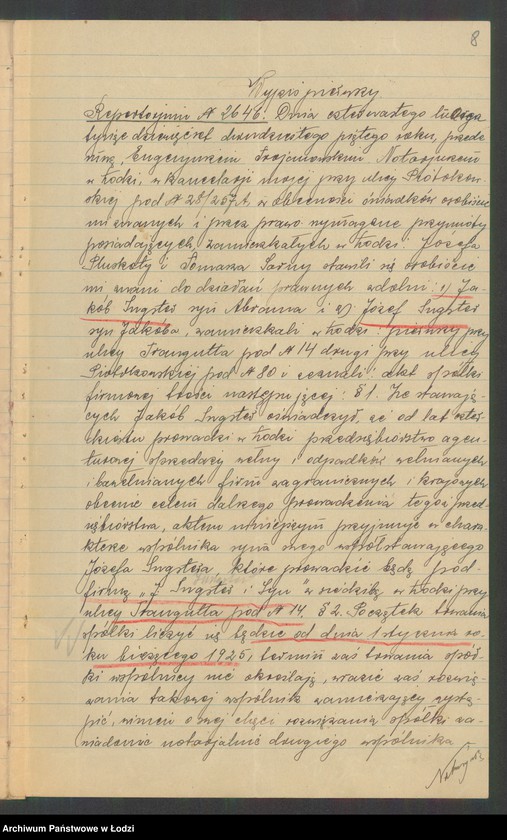 8
Wypis pierwszy
Repertorjum № 2646. Dnia czwartego lutego
tysiąc dziewięćset dwudziestego piątego roku, przede
mną, Eugenjuszem Trojanowskim Notarjuszem
w Łodzi, w kancelarji mojej przy ulicy Piotrkow-
skiej pod № 28/257A w obecności świadków osobiście
mi znanych i przez prawo wymagane przymioty
posiadających, zamieszkałych w Łodzi: Józefa
Pluskoty i Tomasza Sarny stawili się osobiście
mi znani do działań prawnych zdolni: 1) Ja-
kób syn Abrama i 2) Józef
syn Jakóba, zamieszkali w Łodzi, pierwszy przy
ulicy Traugutta pod № 14 drugi przy ulicy
Piotrkowskiej pod № 80 i zeznali akt spółki
firmowej treści następującej: § 1. Ze stawają-
cych Jakób oświadczył, że od lat
prowadzi w Łodzi przedsiębiorstwo agen-
turowej sprzedaży wełny i odpadków wełnianych
i bawełnianych firm zagranicznych i krajowych
obecnie celem dalszego prowadzenia tegoż przed-
siębiorstwa, aktem niniejszym przyjmuje w chara-
kterze wspólnika syna swego współstawającego
Józefa, które prowadzić będą pod
firmą „J. i Syn" w siedzibą w Łodzi przy
ulicy Traugutta pod № 14. § 2. Początek trwania
spółki liczyć się będzie od dnia 1 stycznia ro-
ku bieżącego 1925, termin zaś trwania spół-
ki wspólnicy nie określają, w razie zaś rozwią-
zania takowej wspólnik zamierzający wystą-
pić, winien o swej chęci rozwiązania spółki za-
wiadomić notarjalnie drugiego wspólnika
Archiwum Państwowe w Łodzi